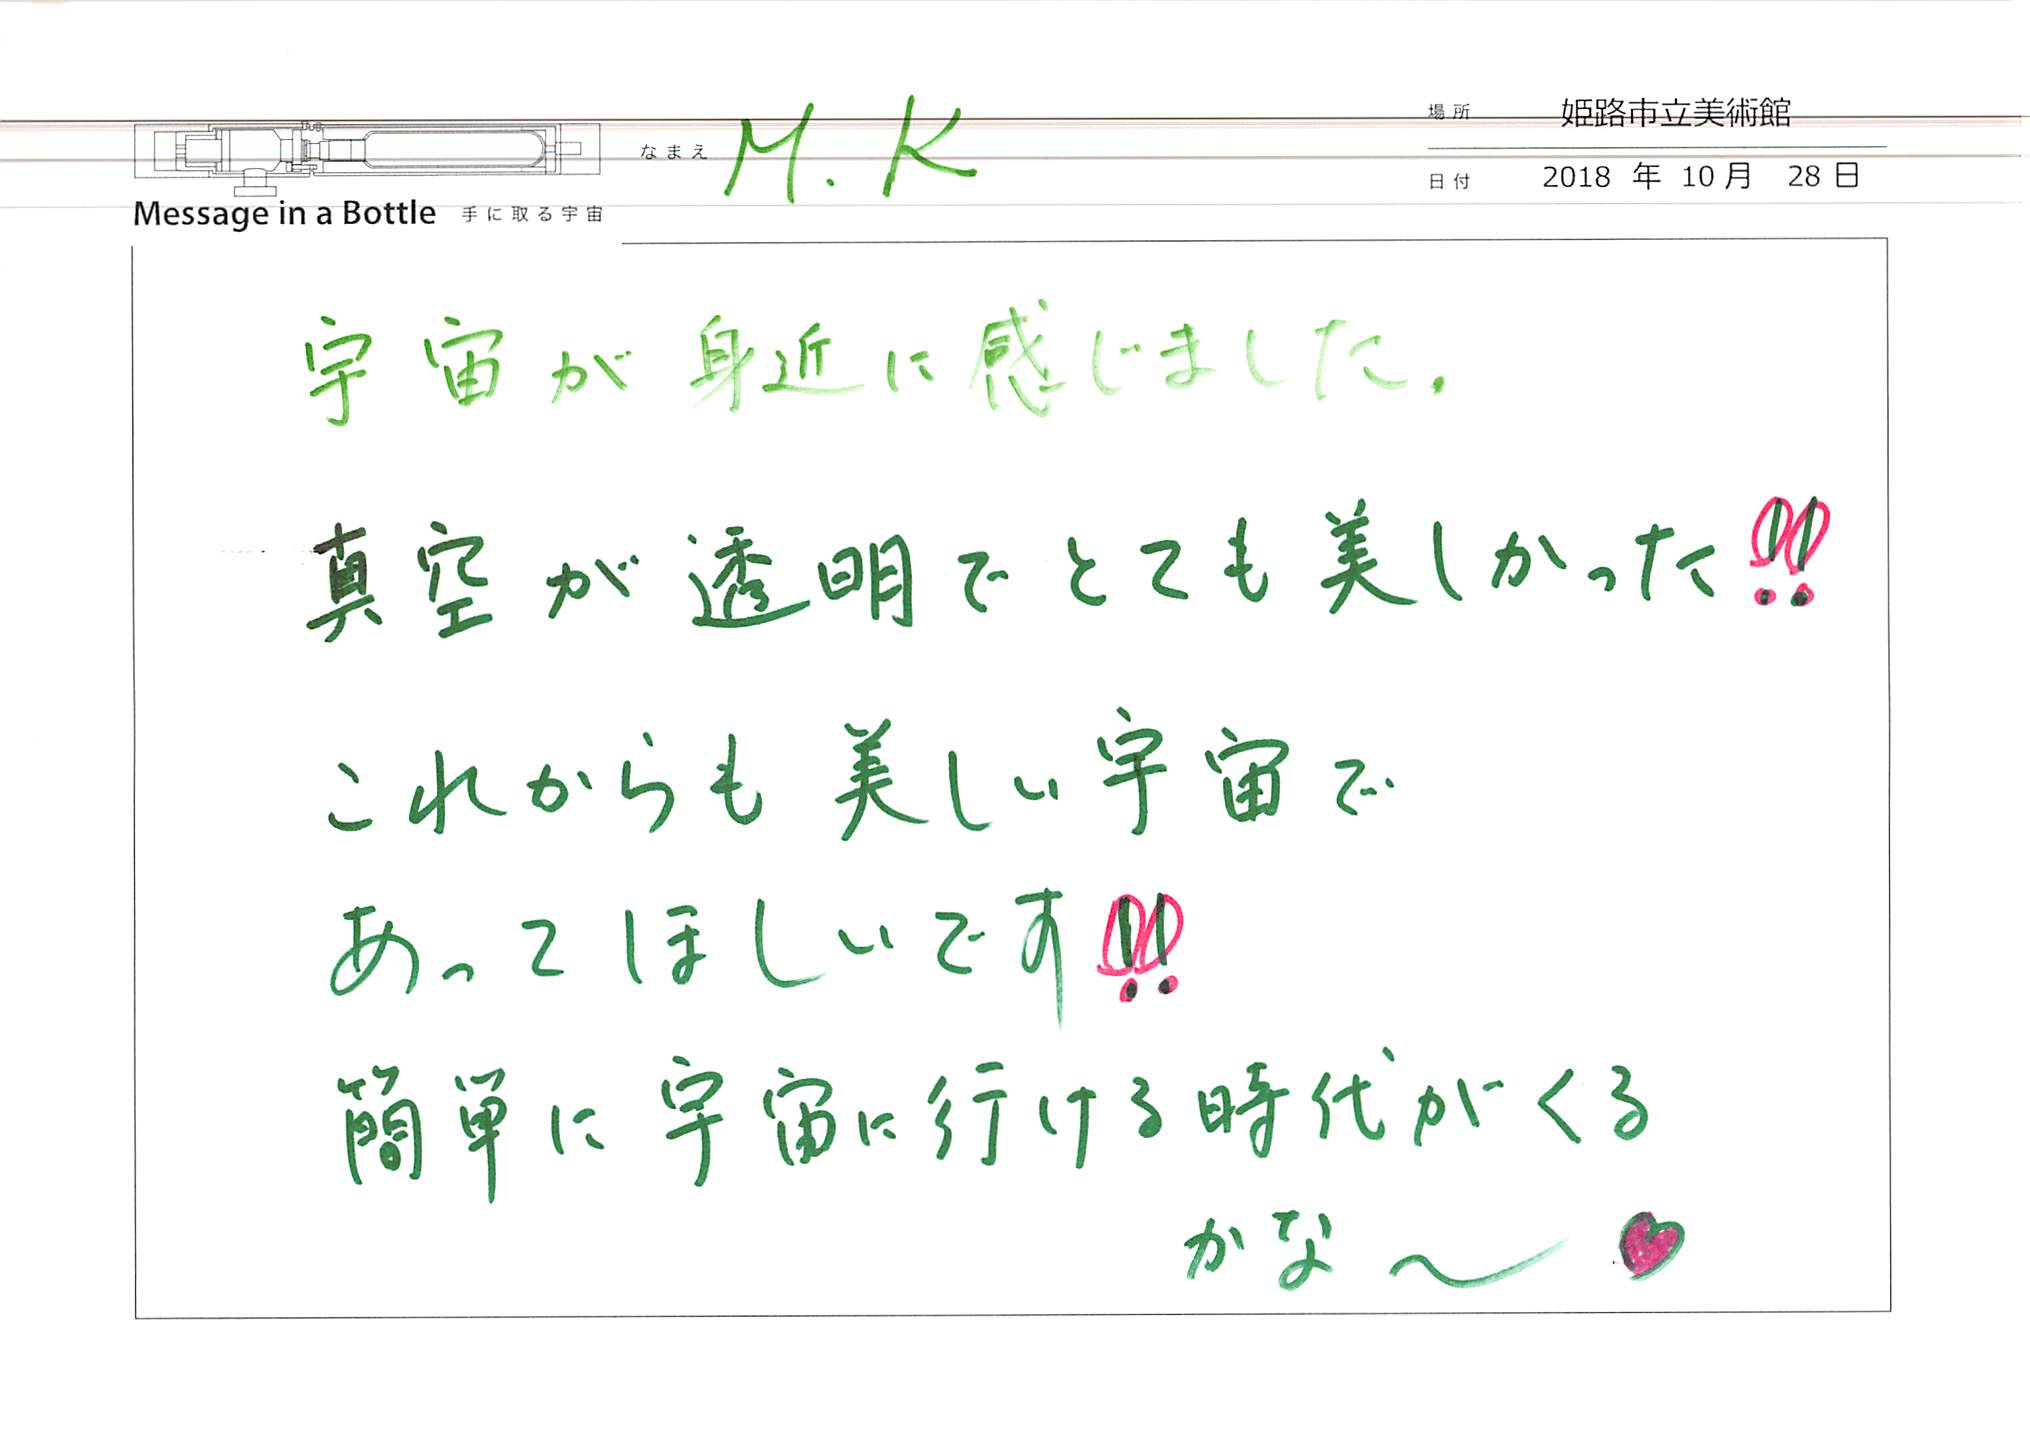 Message in a Bottle 手に取る宇宙
なまえ M.K
場所 姫路市立美術館
日付 2018 年 10 月 28 日
宇宙が身近に感じました.
真空が透明でとても美しかった!!
これからも美しい宇宙で
あってほしいです!!
簡単に宇宙に行ける時代がくる
かな〜